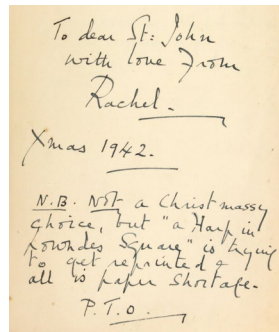 To dear St: John
with love from
Rachel.
Xmas 1942.
N.B. Not a Christmassy
choice, but "a Harp in
Lowndes Square" is trying
to get reprinted &
all is paper shortage.
P.T.O.